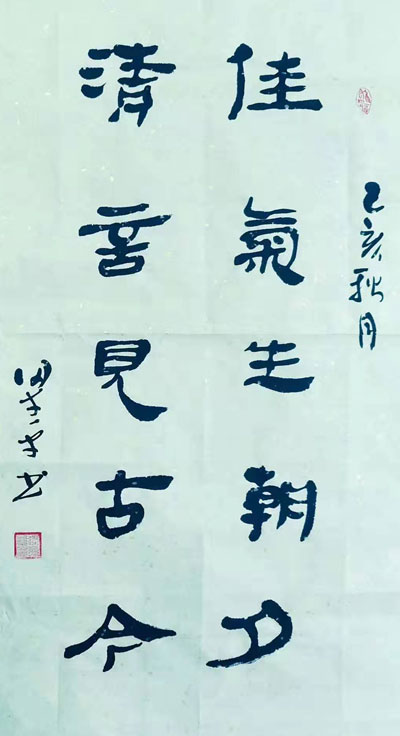 乙亥秋月
佳氣生朝夕
清言見古今
书